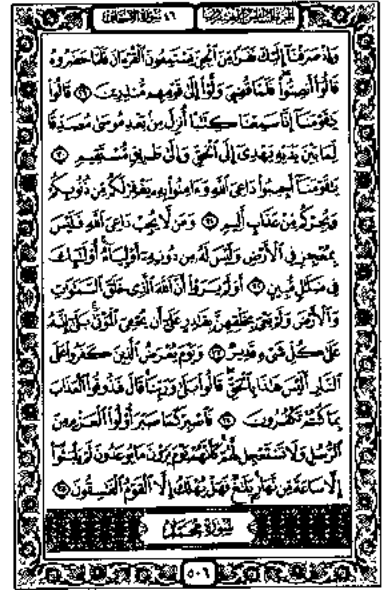 ٤٦ سورة الأحقاف الجزء السادس والعشرون
وَإِذْ صَرَفْنَآ إِلَيْكَ نَفَرًا مِّنَ ٱلْجِنِّ يَسْتَمِعُونَ ٱلْقُرْءَانَ فَلَمَّا حَضَرُوهُ
قَالُوٓا۟ أَنصِتُوا۟ فَلَمَّا قُضِىَ وَلَّوْا۟ إِلَىٰ قَوْمِهِم مُّنذِرِينَ ٢٩ قَالُوا۟
يَٰقَوْمَنَآ إِنَّا سَمِعْنَا كِتَٰبًا أُنزِلَ مِنۢ بَعْدِ مُوسَىٰ مُصَدِّقًا
لِّمَا بَيْنَ يَدَيْهِ يَهْدِىٓ إِلَى ٱلْحَقِّ وَإِلَىٰ طَرِيقٍ مُّسْتَقِيمٍ ٣٠
يَٰقَوْمَنَآ أَجِيبُوا۟ دَاعِىَ ٱللَّهِ وَءَامِنُوا۟ بِهِۦ يَغْفِرْ لَكُم مِّن ذُنُوبِكُمْ
وَيُجِرْكُم مِّنْ عَذَابٍ أَلِيمٍ ٣١ وَمَن لَّا يُجِبْ دَاعِىَ ٱللَّهِ فَلَيْسَ
بِمُعْجِزٍ فِى ٱلْأَرْضِ وَلَيْسَ لَهُۥ مِن دُونِهِۦٓ أَوْلِيَآءُ أُو۟لَٰٓئِكَ
فِى ضَلَٰلٍ مُّبِينٍ ٣٢ أَوَلَمْ يَرَوْا۟ أَنَّ ٱللَّهَ ٱلَّذِى خَلَقَ ٱلسَّمَٰوَٰتِ
وَٱلْأَرْضَ وَلَمْ يَعْىَ بِخَلْقِهِنَّ بِقَٰدِرٍ عَلَىٰٓ أَن يُحْۦِىَ ٱلْمَوْتَىٰ بَلَىٰٓ إِنَّهُۥ
عَلَىٰ كُلِّ شَىْءٍ قَدِيرٌ ٣٣ وَيَوْمَ يُعْرَضُ ٱلَّذِينَ كَفَرُوا۟ عَلَى
ٱلنَّارِ أَلَيْسَ هَٰذَا بِٱلْحَقِّ قَالُوا۟ بَلَىٰ وَرَبِّنَا قَالَ فَذُوقُوا۟ ٱلْعَذَابَ
بِمَا كُنتُمْ تَكْفُرُونَ ٣٤ فَٱصْبِرْ كَمَا صَبَرَ أُو۟لُوا۟ ٱلْعَزْمِ مِنَ
ٱلرُّسُلِ وَلَا تَسْتَعْجِل لَّهُمْ كَأَنَّهُمْ يَوْمَ يَرَوْنَ مَا يُوعَدُونَ لَمْ يَلْبَثُوٓا۟
إِلَّا سَاعَةً مِّن نَّهَارٍۭ بَلَٰغٌ فَهَلْ يُهْلَكُ إِلَّا ٱلْقَوْمُ ٱلْفَٰسِقُونَ ٣٥
سورة محمد
٥٠٦